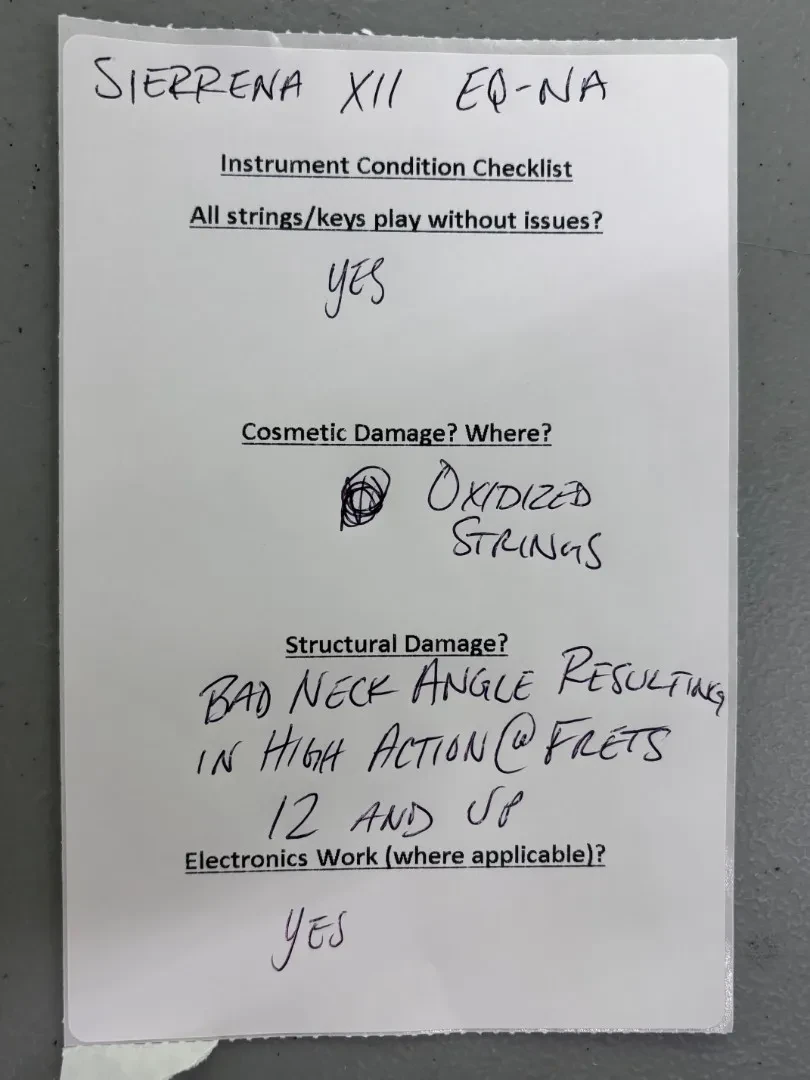 SIERRENA XII EQ-NA
Instrument Condition Checklist
All strings/keys play without issues?
YES
Cosmetic Damage? Where?
OXIDIZED
STRINGS
Structural Damage?
BAD NECK ANGLE RESULTING
IN HIGH ACTION @ FRETS
12 AND UP
Electronics Work (where applicable)?
YES